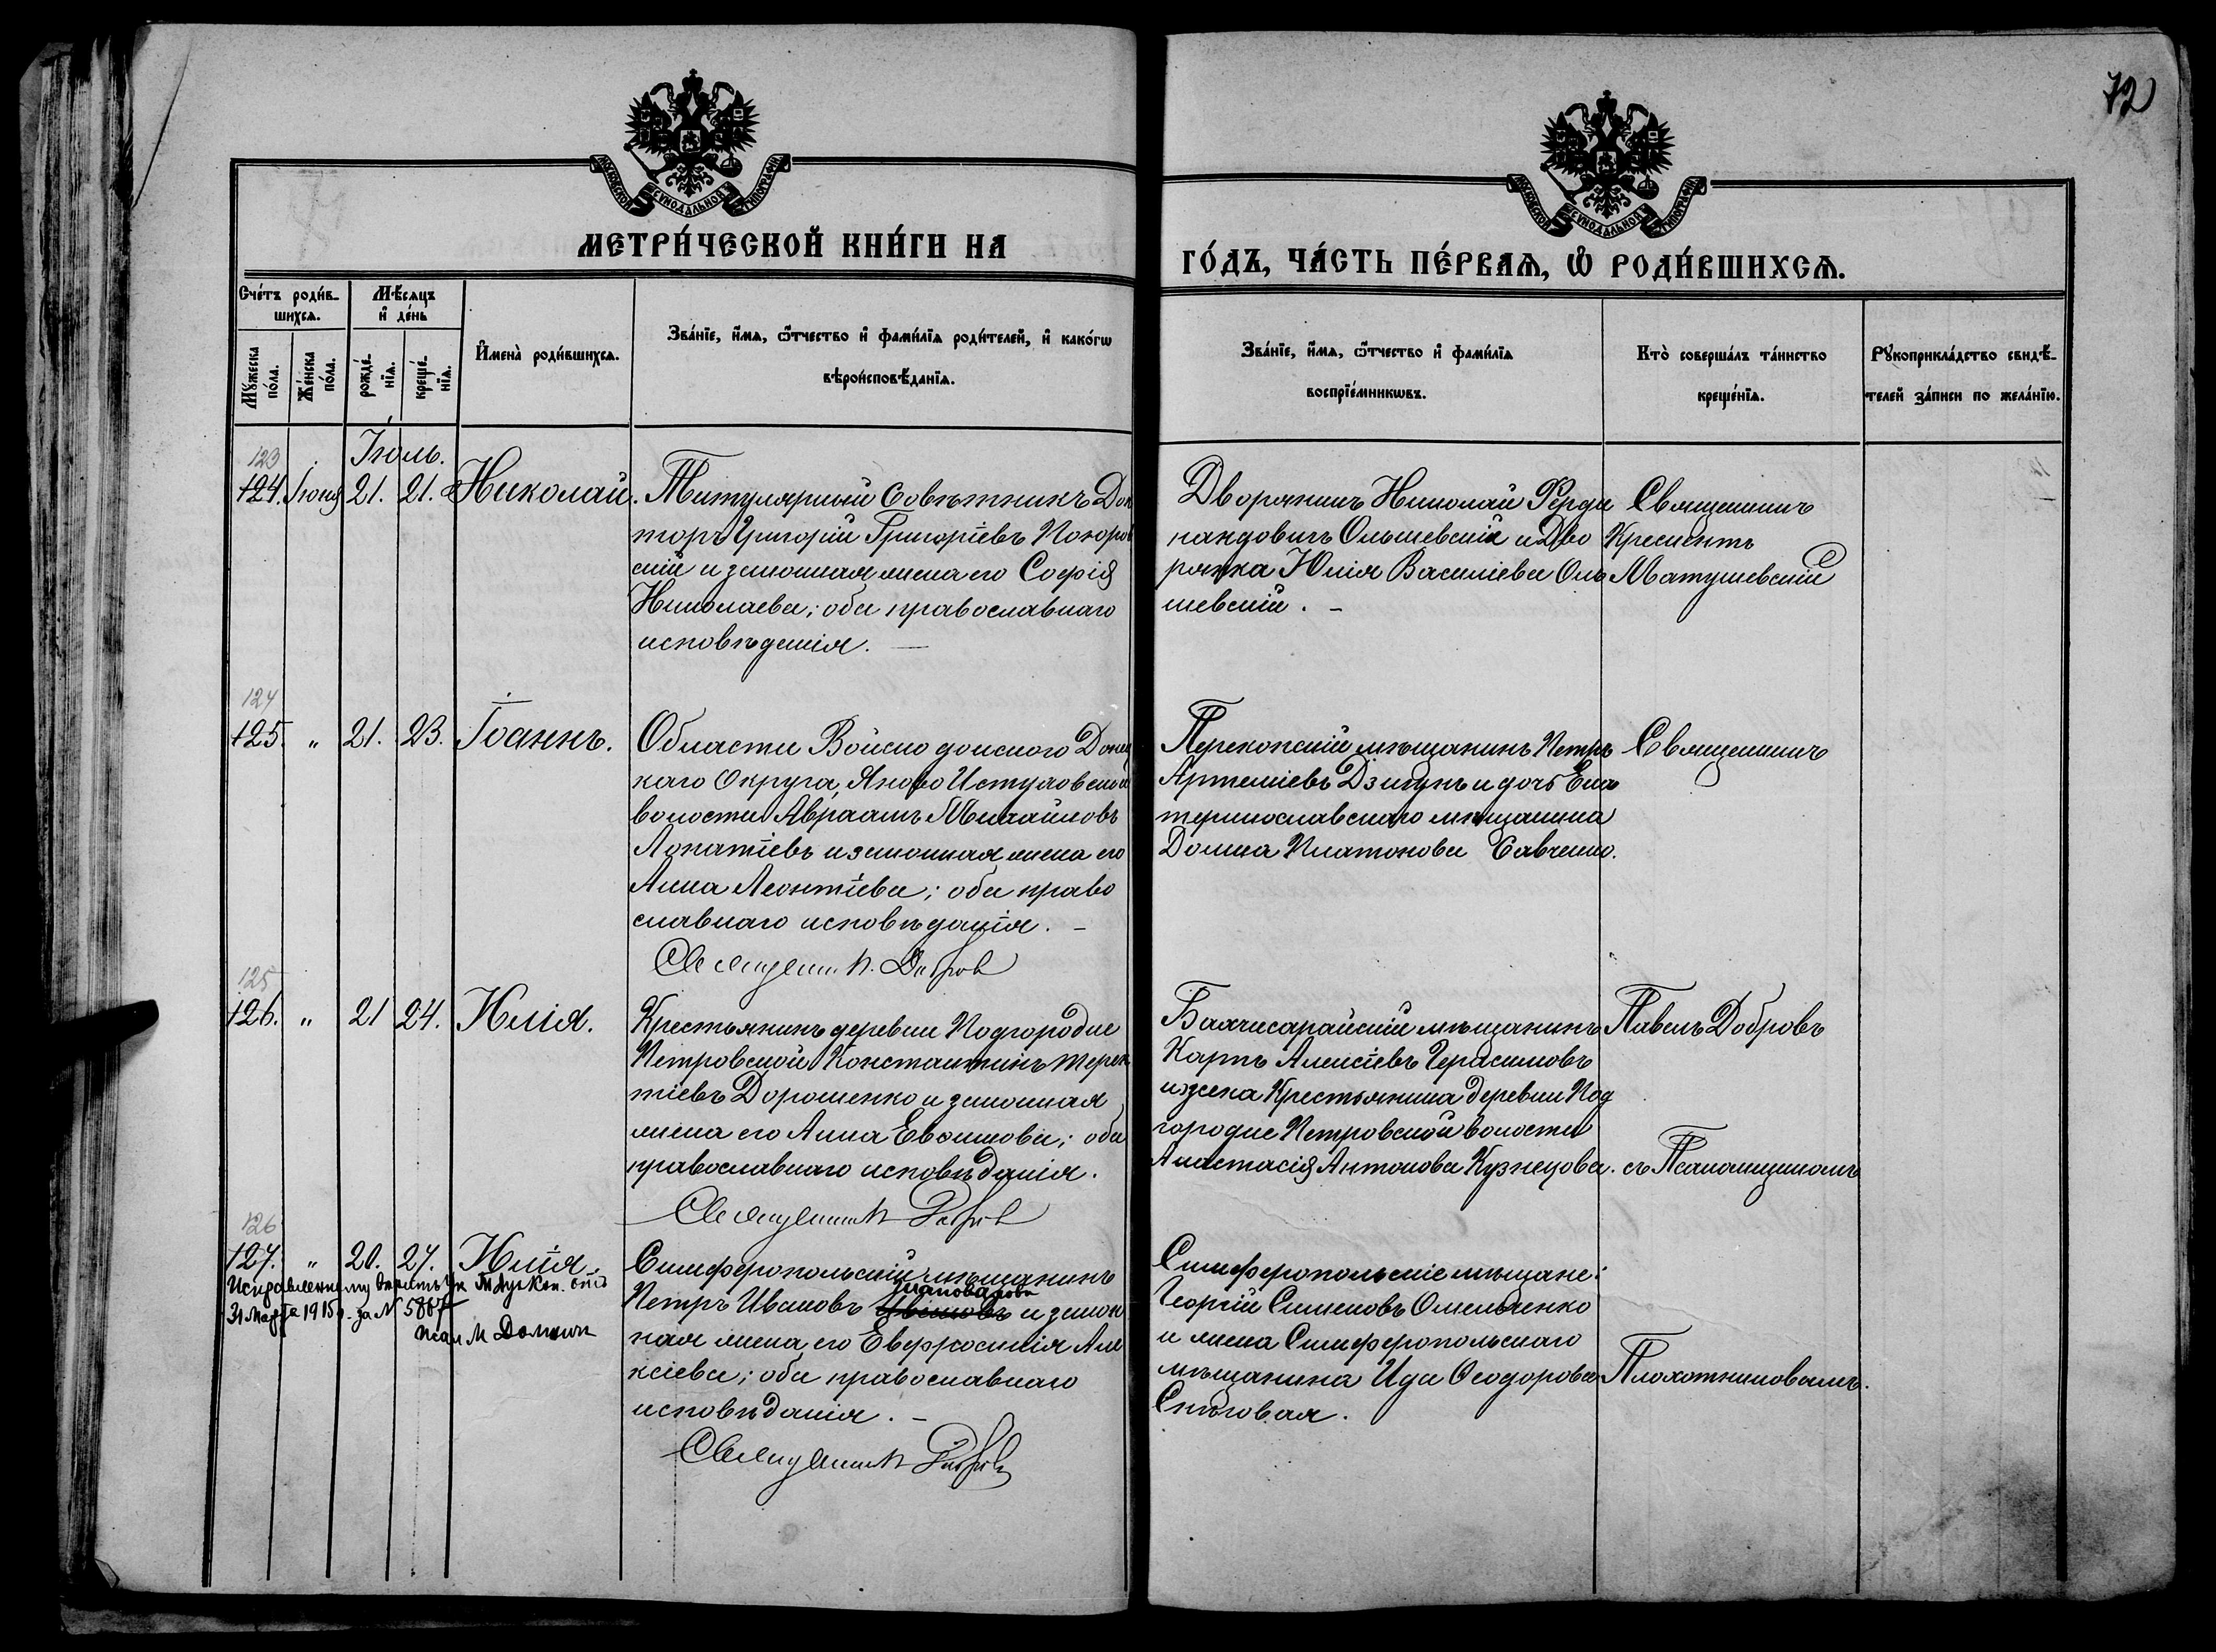 72
МОСКОВСКОЙ СѴНОДАЛЬНОЙ ТИПОГРАФІИ
МОСКОВСКОЙ СѴНОДАЛЬНОЙ ТИПОГРАФІИ
МЕТРИ́ЧЕСКОЙ КНИ́ГИ НА
ГО́ДЪ, ЧА́СТЬ ПЕ́РВАѦ, Ѡ҆ РОДИ́ВШИХСѦ.
Счéтъ родив-
шихсѧ.
Мꙋжеска
по́ла.
Же́нска
по́ла.
Мѣ́сѧцъ
и҆ де́нь
рожде́-
нїѧ.
креще́-
нїѧ.
И҆мена̀ роди́вшихсѧ.
Зва́нїе, и҆́мѧ, ѻ҆́тчество и҆ фами́лїѧ роди́телей, и҆ како́гѡ
вѣроисповѣ́данїѧ.
Зва́нїе, и҆́мѧ, ѻ҆́тчество и҆ фами́лїѧ
воспрїе́мникѡвъ.
Кто̀ соверша́лъ та́инство
креще́нїѧ.
Рꙋкоприкла́дство свидѣ́-
телей за́писи по жела́нїю.
Іюль.
123
124. Іюня 21. 21. Николай.
Титулярный Совѣтникъ Док
торъ Григорій Григоріевъ
скій и законная жена его Софія
Николаева; оба православнаго
исповѣданія.
Дворянинъ Николай Ферди
нандовичъ Ольшевскій и Дво
рянка Юлія Василіева Оль
шевскій.
Священникъ
Крескентъ
Матушевскій
124
125. " 21. 23. Іоаннъ.
Области Войско донского Донец
каго Округа,
волости Авраамъ Михайловъ
Лопатіевъ и законная жена его
Анна Леонтіева; оба право
славнаго исповѣданія.
Священник П. Добров
Перекопскій мѣщанинъ Петръ
Артеміевъ и дочь Ека
теринославскаго мѣщанина
Домна Платонова Савченко.
Священникъ
125
126. " 21 24. Юлія.
Крестьянинъ деревни Подгородне
Петровской Константинъ Терен
тіевъ Дорошенко и законная
жена его Анна Евфимова; оба
православнаго исповѣданія.
Священник Добров
Бахчисарайскій мѣщанинъ
Карпъ Алексіевъ Герасимовъ
и жена Крестьянина деревни Под
городне Петровской волости
Анастасія Антонова Кузнецова.
Павелъ Добровъ
съ Псаломщикомъ
126
127. " 20. 27. Юлія
31 Марта 1915 г. за № 5867
Симферопольскій мѣщанинъ
Шаповаловъ
Петръ Ивановъ и закон
ная жена его Евфросинія Але
ксіева; оба православнаго
исповѣданія.
Священник Добров
Симферопольскіе мѣщане:
Георгій Симеоновъ Омельченко
и жена Симферопольскаго
мѣщанина Ида Ѳеодорова
Снѣговая.
Плохотниковымъ.